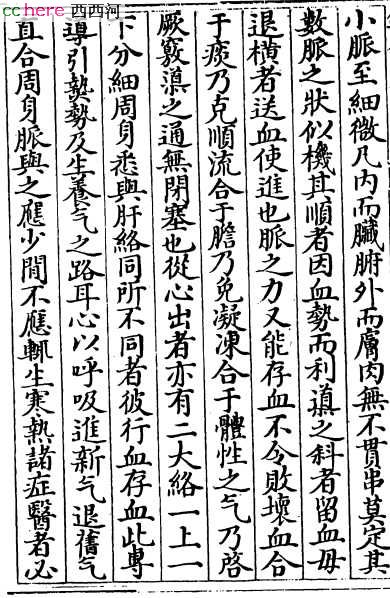 cchere 西西河
小脈至細微凡內而臟腑外而膚肉無不貫串莫定其
數脈之狀似機其順者因血勢而利導之斜者留血毋
退橫者送血使進也脈之力又能存血不令敗壞血合
于痰乃克順流合于膽乃免凝凍合于體性之气乃啓
厥竅導之通無閉塞也從心出者亦有二大絡一上一
下分細周身悉與肝絡同所不同者彼行血存血此專
導引熱勢及生養气之路耳心以呼吸進新气退舊气
直合周身脈與之應少間不應輒生寒熱諸症醫者必